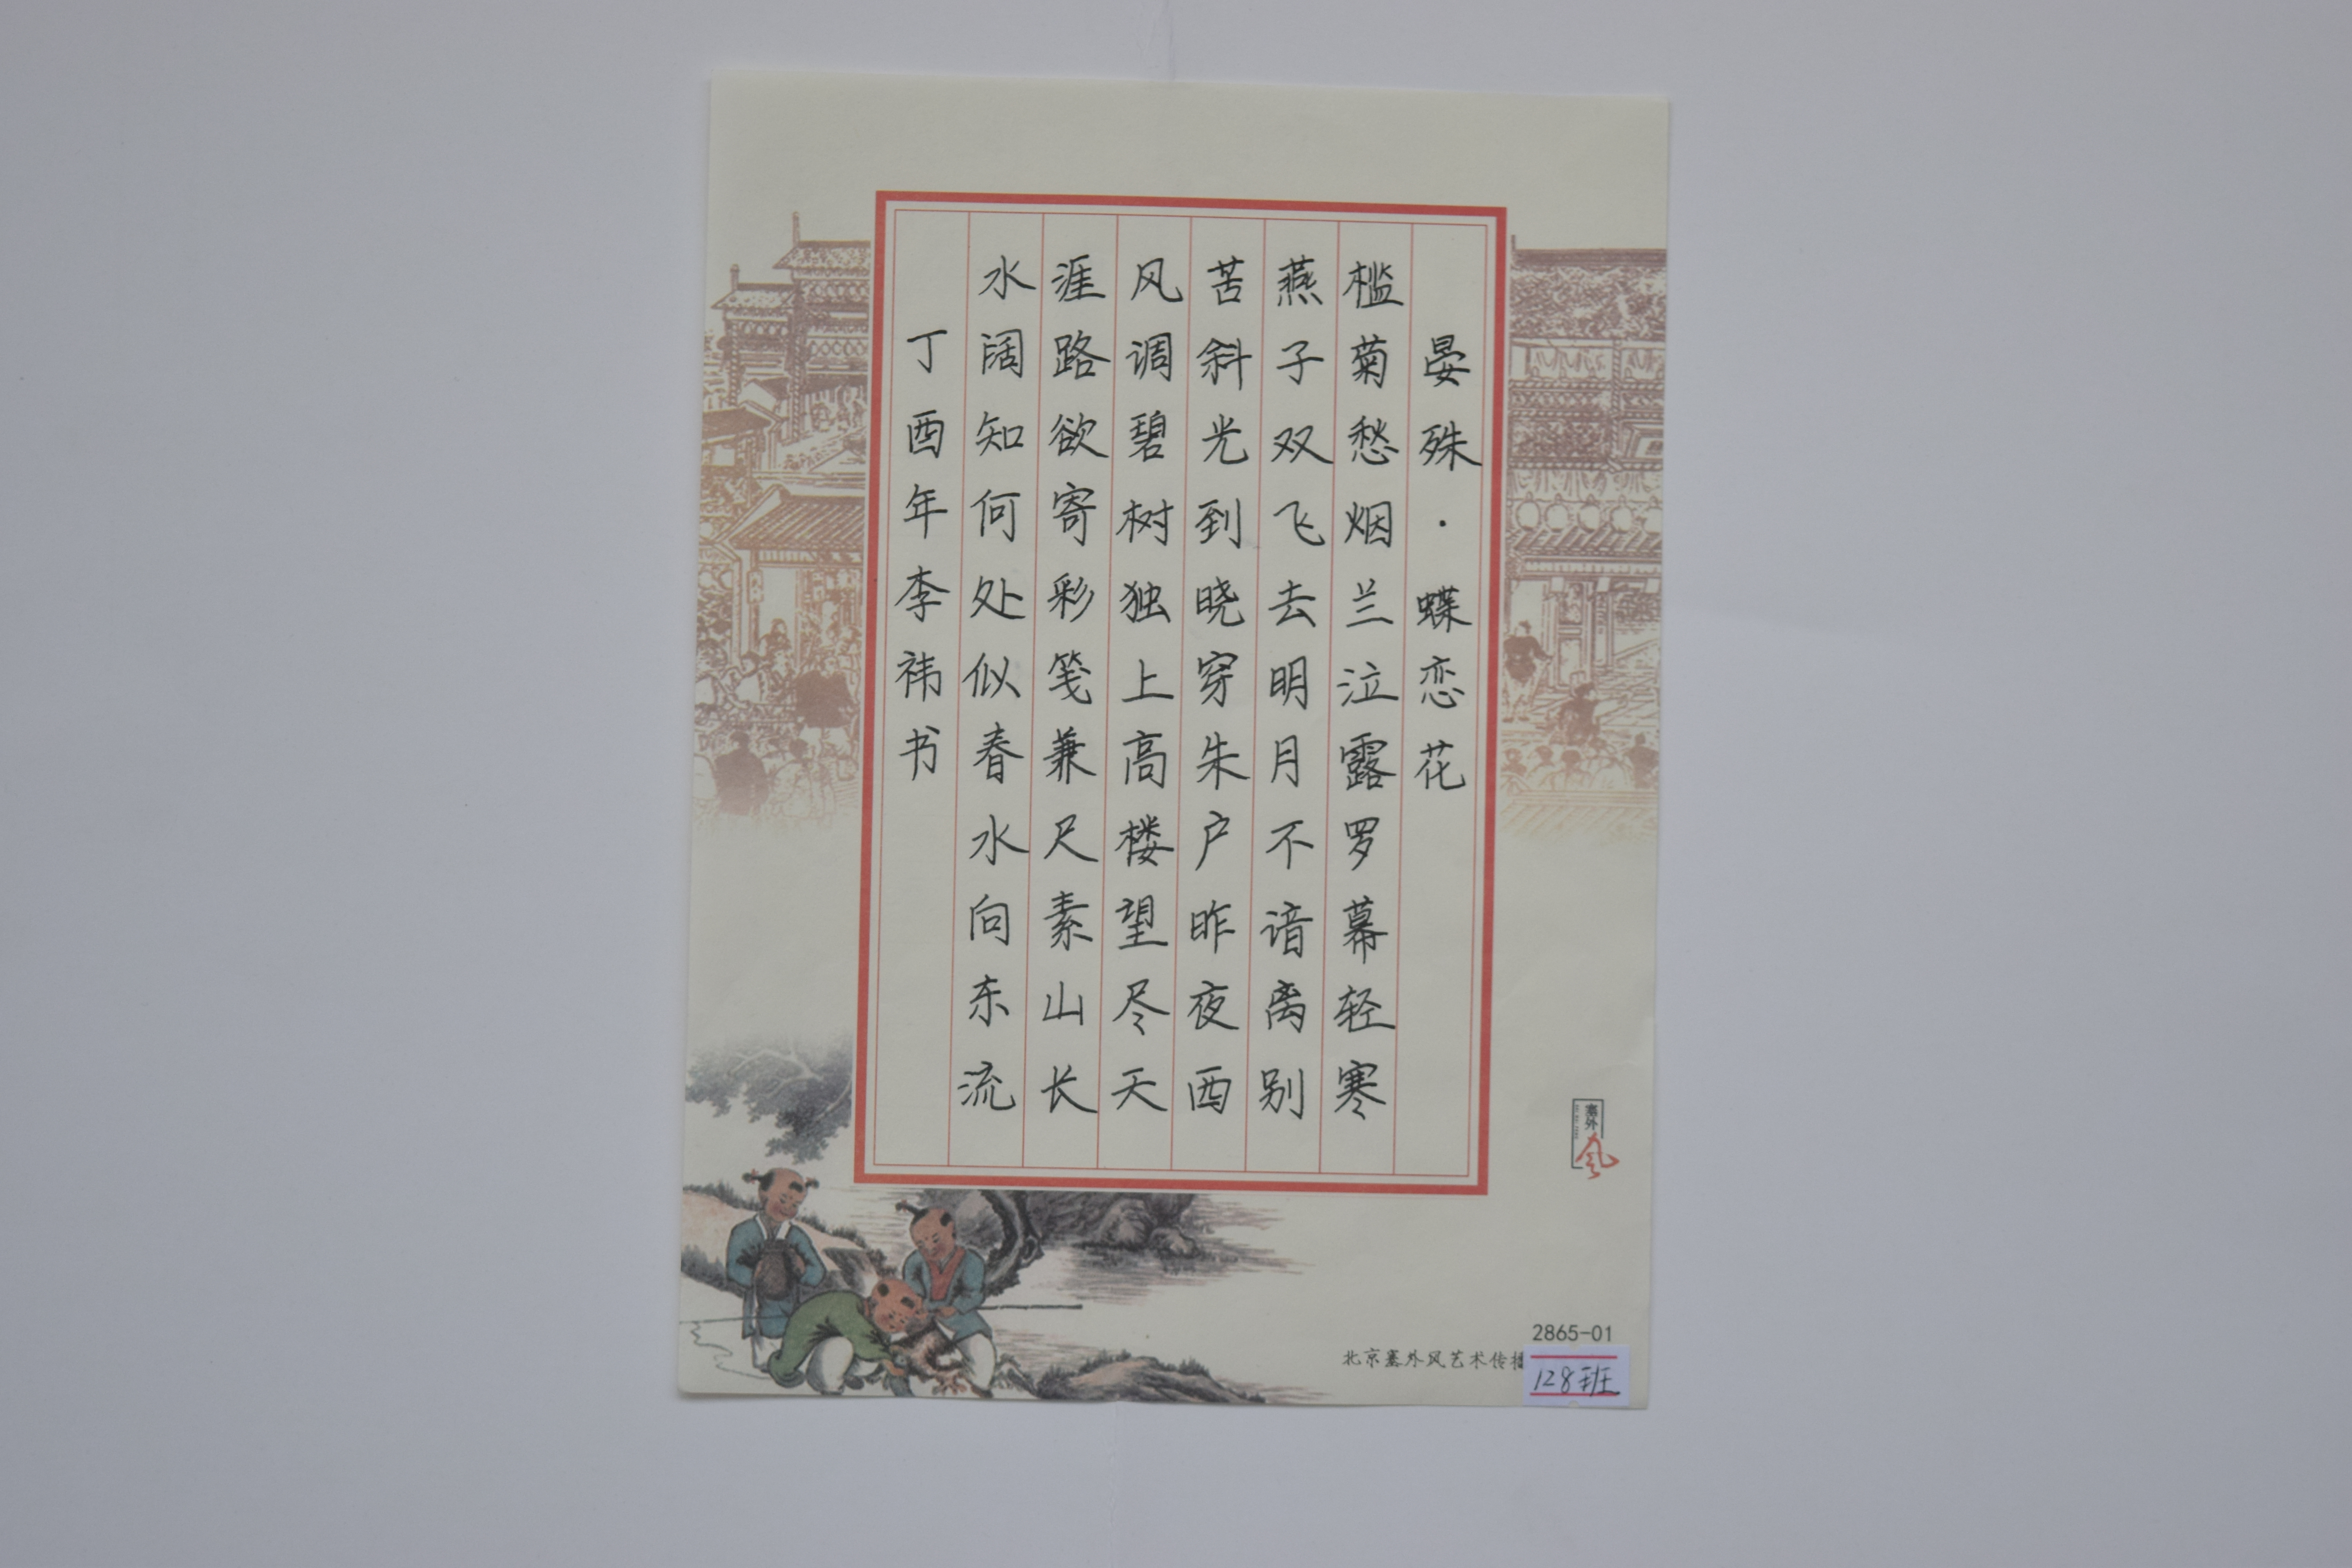 晏殊·蝶恋花
槛菊愁烟兰泣露罗幕轻寒
燕子双飞去明月不谙离别
苦斜光到晓穿朱户昨夜西
风调碧树独上高楼望尽天
涯路欲寄彩笺兼尺素山长
水阔知何处似春水向东流
丁酉年李祎书
塞外
風
2865-01
北京塞外风艺术传播
128班